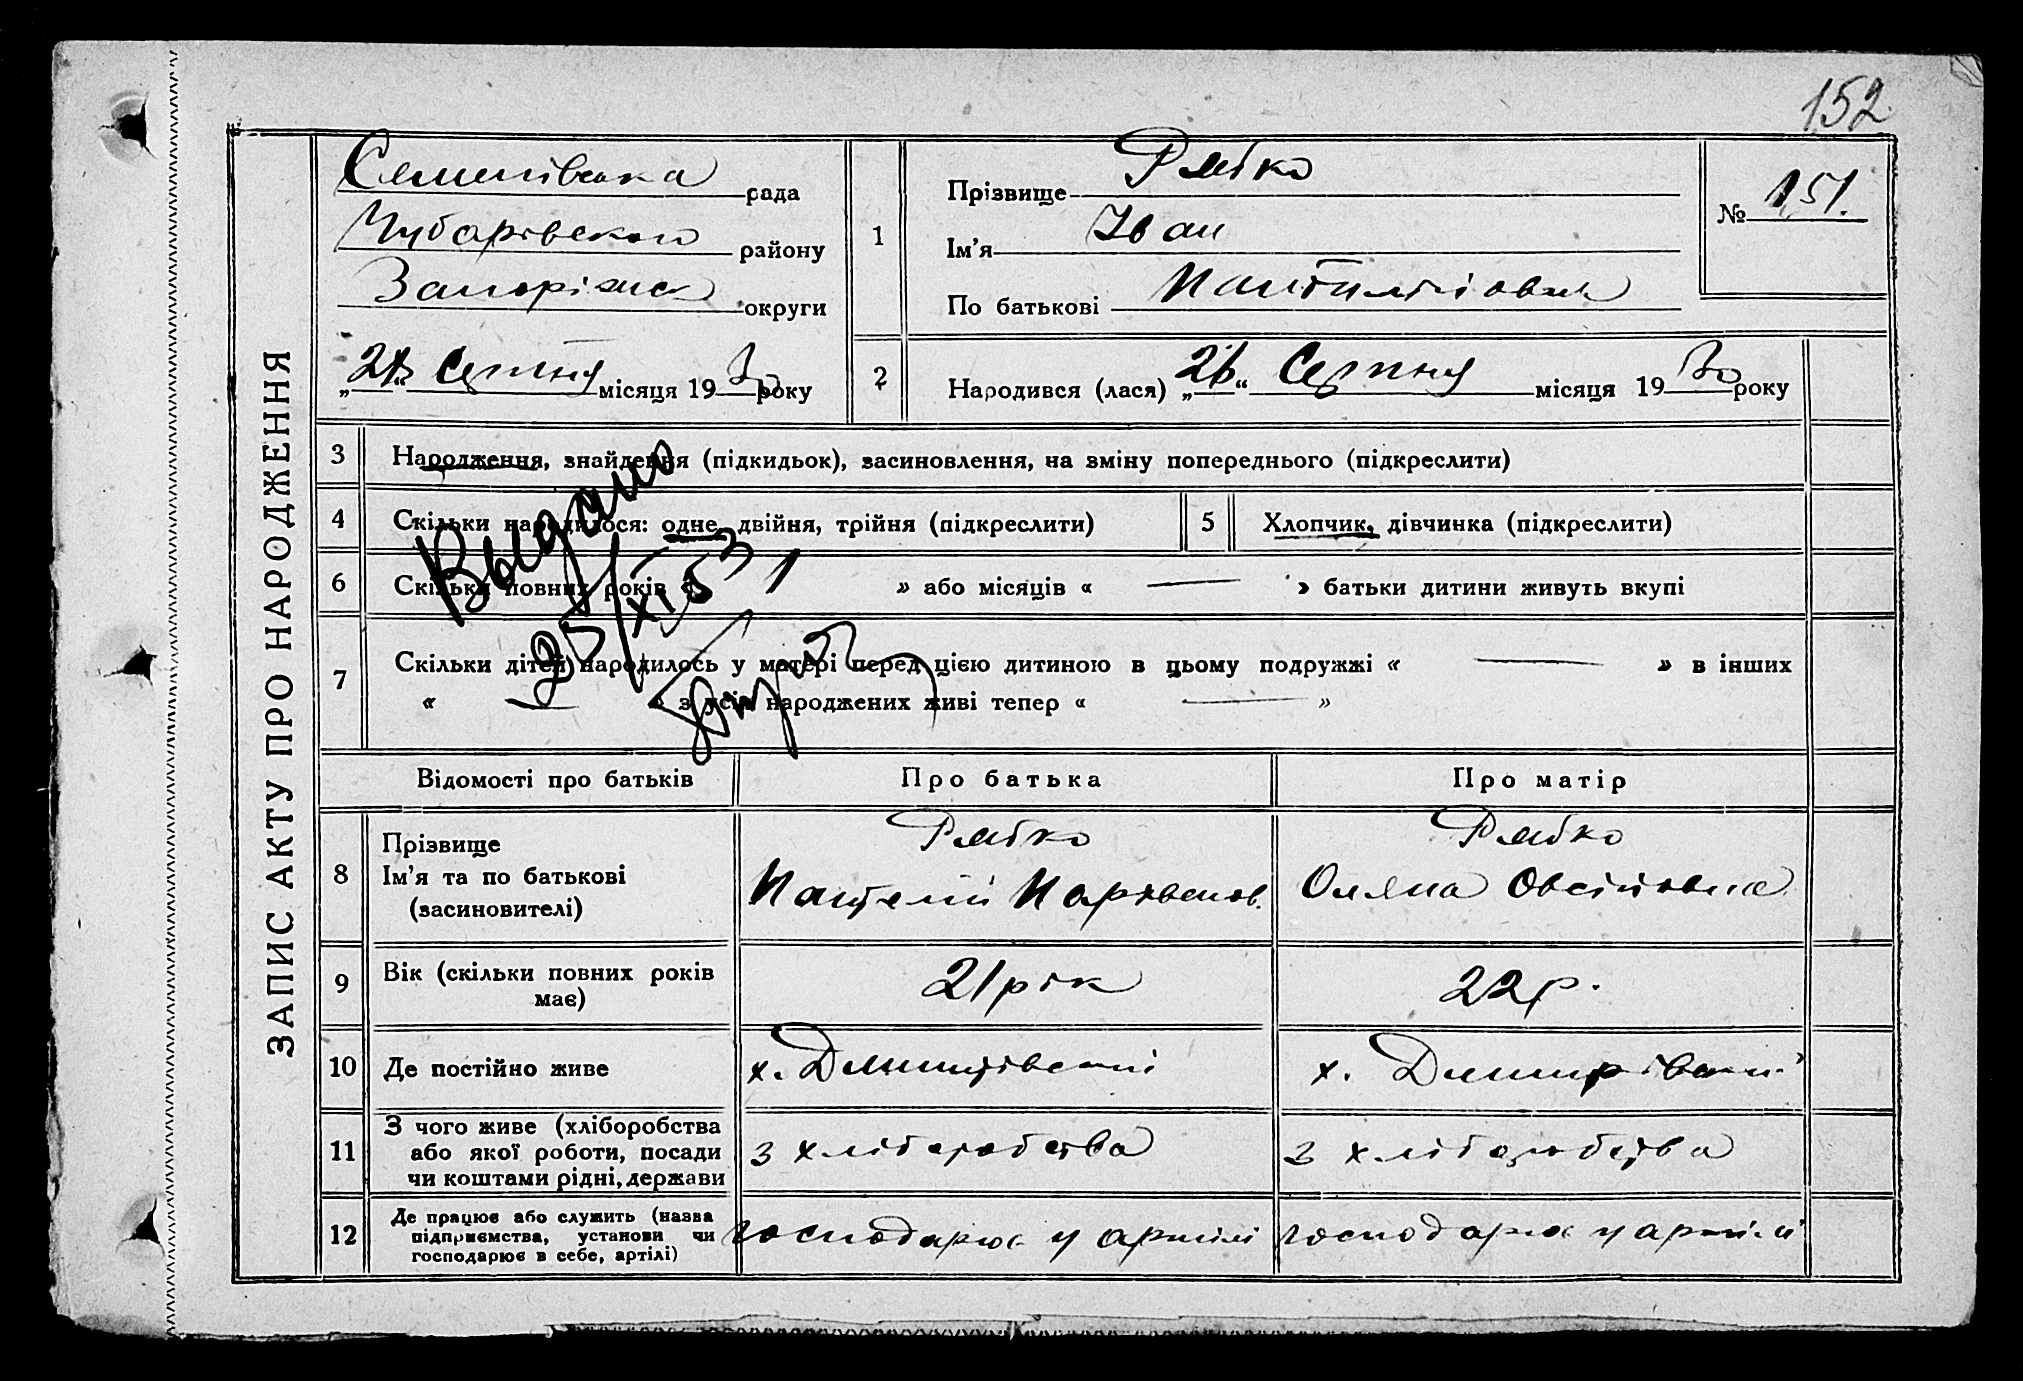 152
ЗАПИС АКТУ ПРО НАРОДЖЕННЯ
Семенівська рада
Чубарівського району
Запоріжск округи
„28“ Серпня місяця 1930 року
1
Прізвище Рябко
Ім'я Іван
По батькові
№ 151.
2
Народився (лася) „26“ Серпня місяця 1930 року
3 Народження, знайдення (підкидьок), засиновлення, на зміну попереднього (підкреслити)
4 Скільки народилося: одне, двійня, трійня (підкреслити)
5 Хлопчик, дівчинка (підкреслити)
6 Скільки повних років « 1 » або місяців « — » батьки дитини живуть вкупі
7 Скільки дітей народилось у матері перед цією дитиною в цьому подружжі « — » в інших
« — » з усіх народжених живі тепер « — »
Выдано
25/XI 53
Відомості про батьків
Про батька
Про матір
8 Прізвище
Ім'я та по батькові
(засиновителі)
Рябко
Пантелій
Рябко
Оляна Овсіївна
9 Вік (скільки повних років
має)
21 рік
22 р.
10 Де постійно живе
х. Дмитрівський
х. Дмитрівський
11 З чого живе (хліборобства
або якої роботи, посади
чи коштами рідні, держави
з хліборобства
з хліборобства
12 Де працює або служить (назва
підприємства, установи чи
господарює в себе, артілі)
господарює у артілі
господарює у артілі